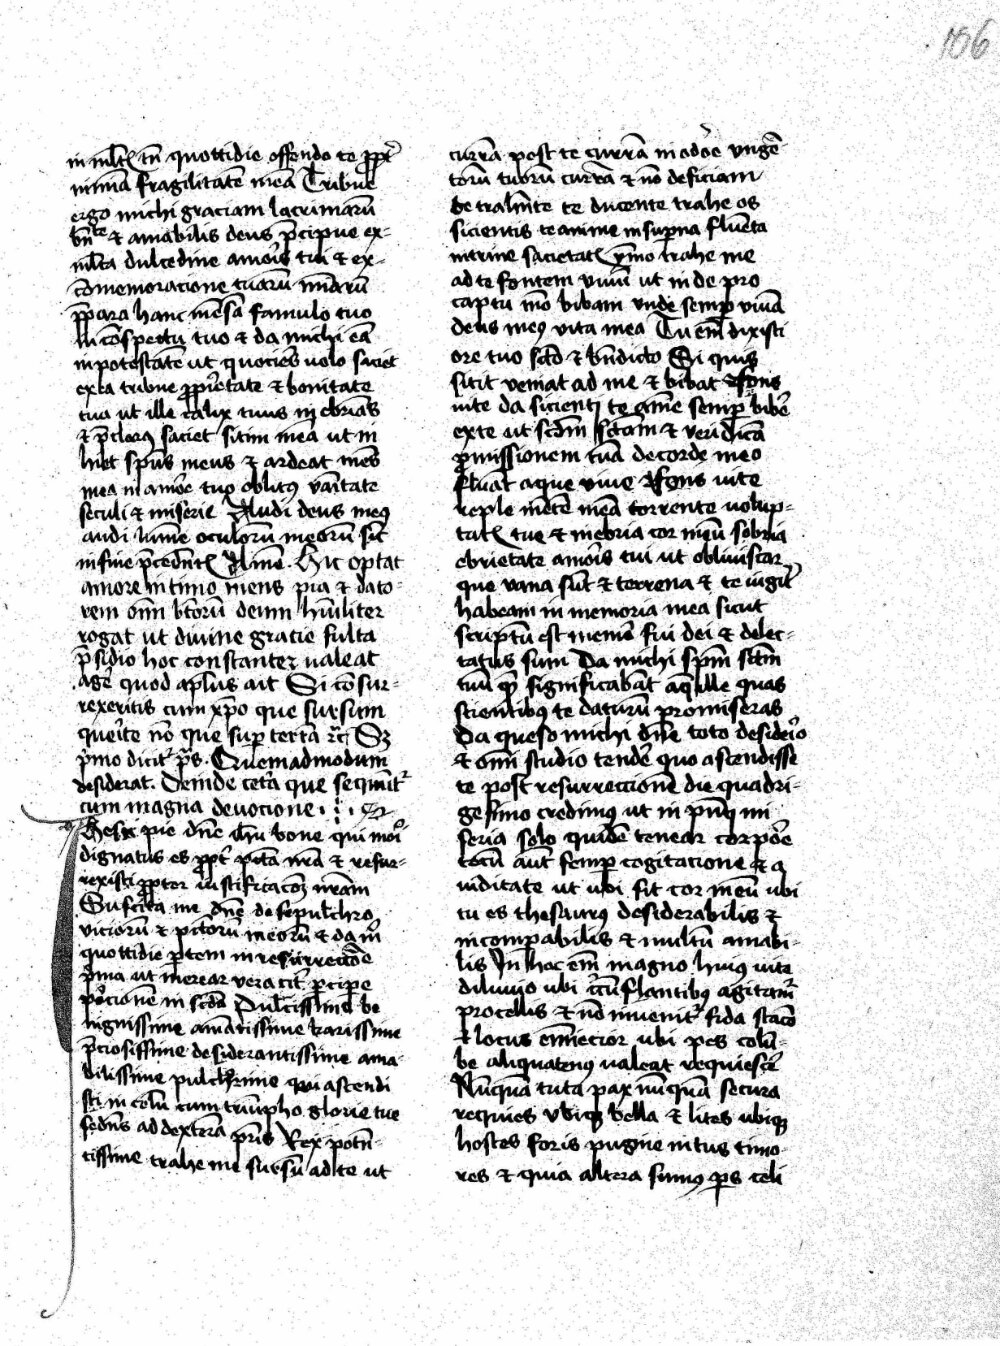 156
in ml̄tꝭ tn̄ quottidie offendo te ꝓpt̄
nimiā fragilitatē meā Tribue
ergo michi graciam lacrimarū
bn̄te & amabilis deus p̄cipue ex-
ml̄ta dulcedine amoris tui & ex-
cōmemoracione tuarū mīarū
p̄para hanc mēsā famulo tuo
In cōspectu tuo & da michi eā
in potestatē ut quociēs uolo saciet
exea tribue ꝓp̄rietate & bonitate
tua ut ille calix tuus inebrians
& p̄clarꝰ saciet sitim meā ut in
hiet sp̄us meus & ardeat mēs
mea in amōe tuo oblitꝰ vāitate
seculi & miserie Audi deus meꝰ
audi lumē oculorū meorū sic̄
in fine p̄cedn̄tꝭ Alme. Hic optat
amore intimo mens pia & dato-
rem om̄ bōorū deum hūiliter
rogat ut diuine gracie fulta
p̄sidio hoc constanter ualeat
agē quod aplus ait Si cōsur-
rexeritis cum xp̄o que sursum
querite nō que sup̲ terrā rc̄ Sꝫ
p̄mo dicit᷑ p̄s. Quemadmodum
desiderat. Deinde cetā que sequūt᷑
cum magna deuocione
Ihesu pie dn̄e ih̄u bone qui mori
dignatus es ꝓpt̄ pcc̄a nr̄a & resur-
rexisti ꝓpter iustificacōꝫ nr̄am
Suscita me dn̄e de sepulchro
viciorū & pcc̄orū meorū & da m̄
quottidie p̲tem in resurreccōe
p̄ma ut merear veraciter p̲cipe
porcionē in scd̄a Dulcissime be
nignissime amātissime karissime
p̄ciosissime desiderantissime ama-
bilissime pulcherrime qui ascendi
sti in celū cum triūpho glorie tue
sedēns ad dexterā pr̄is Rex potn̄-
tissime trahe me sursū ad te ut
currā post te currā in odōe ungē-
torū tuorū currā & nō deficiam
te trahn̄te te ducente trahe os
sicientis te anime in sup̲na fluēta
et̄ne sacietatꝭ ymo trahe me
ad te fontem viuū ut inde pro
captu mō bibam unde semp̲ viuā
deus meꝰ vita mea Tu em̄ dixisti
ore tuo scō & bn̄dicto Si quis
sitit veniat ad me & bibat fons
uite da sicienti te aīe semp̲ bibē
exte ut scd̄m scām & veridicā
p̄missionem tuā de corde meo
fluāt aque viue fons uite
reple mētē meā torrente uolup-
tatꝭ tue & inebria cor meū sobria
ebrietate amoris tui ut obliuiscar
que vana sūt & terrena & te iugit̄
habeam in memoria mea sicut
scriptū est memor fui dei & delec-
tatus sum Da michi sp̄m scm̄
tuū quē significabāt aque ille quas
scientibus te daturū promiseras
Da queso michi dn̄e toto desiderio
& om̄i studio tendē quo ascendisse
te post resurreccionē die quadri-
gesimo credimus ut in p̄nti mi
seria solo quidē tenear corpōe
tecū aūt semp̲ cogitacione & a
uiditate ut ubi sit cor meū ubi
tu es thesaurus desiderabilis &
incomparabilis & multū amabi-
lis In hoc em̄ magno huiꝰ uite
diluuio ubi circūflantibꝰ agitam̄
procellis & nō inuenit᷑ fida stacio
& locus emīecior ubi pes colū-
be aliquatenus ualeat requiescē
Nūquā tuta pax nūquā secura
requies ubiqꝫ bella & lites ubiqꝫ
hostes foris pugne intus timo-
res & quia altera sumꝰ ps celi